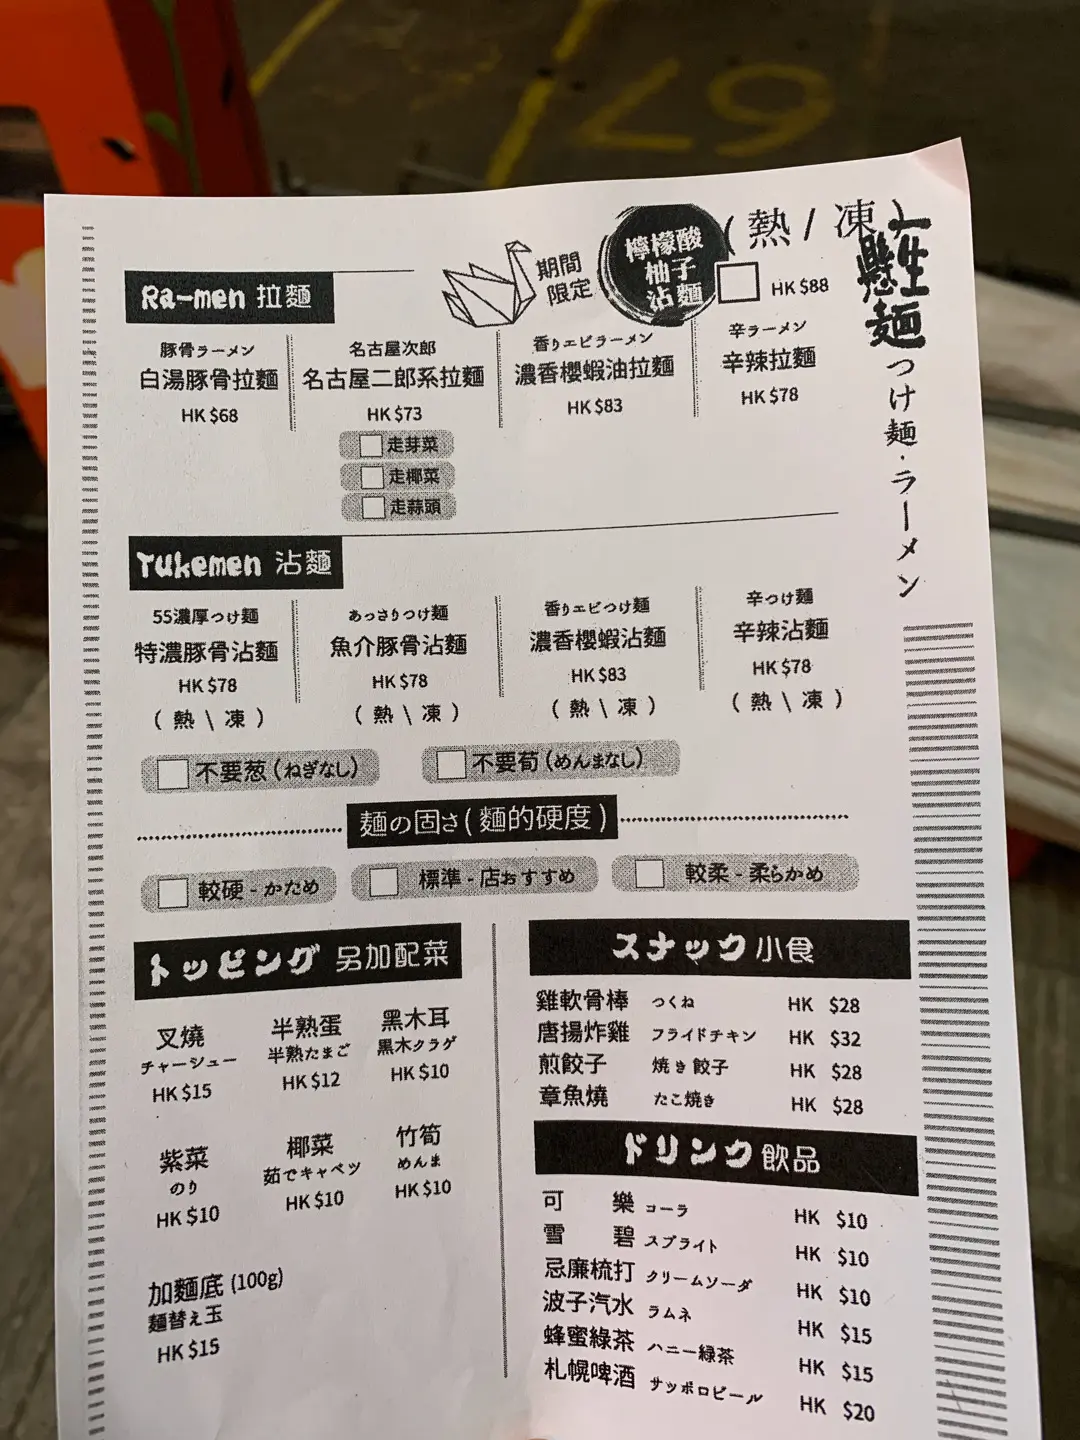 懸生麺
つけ麺・ラーメン
期間限定
檸檬酸
柚子
沾麵
(熱/凍)
HK $88
Ra-men 拉麵
豚骨ラーメン
白湯豚骨拉麵
HK $68
名古屋次郎
名古屋二郎系拉麵
HK $73
走芽菜
走椰菜
走蒜頭
香りエビラーメン
濃香櫻蝦油拉麵
HK $83
辛ラーメン
辛辣拉麵
HK $78
Tukemen 沾麵
55濃厚つけ麺
特濃豚骨沾麵
HK $78
(熱\凍)
あっさりつけ麺
魚介豚骨沾麵
HK $78
(熱\凍)
香りエビつけ麺
濃香櫻蝦沾麵
HK $83
(熱\凍)
辛つけ麺
辛辣沾麵
HK $78
(熱\凍)
不要葱(ねぎなし)
不要荀(めんまなし)
麺の固さ(麵的硬度)
較硬 - かため
標準 - 店おすすめ
較柔 - 柔らかめ
トッピング 另加配菜
叉燒
チャーシュー
HK $15
半熟蛋
半熟たまご
HK $12
黑木耳
黒木クラゲ
HK $10
紫菜
のり
HK $10
椰菜
茹でキャベツ
HK $10
竹筍
めんま
HK $10
加麵底 (100g)
麺替え玉
HK $15
スナック 小食
雞軟骨棒 つくね HK $28
唐揚炸雞 フライドチキン HK $32
煎餃子 焼き餃子 HK $28
章魚燒 たこ焼き HK $28
ドリンク 飲品
可樂 コーラ HK $10
雪碧 スプライト HK $10
忌廉梳打 クリームソーダ HK $10
波子汽水 ラムネ HK $15
蜂蜜綠茶 ハニー緑茶 HK $15
札幌啤酒 サッポロビール HK $20